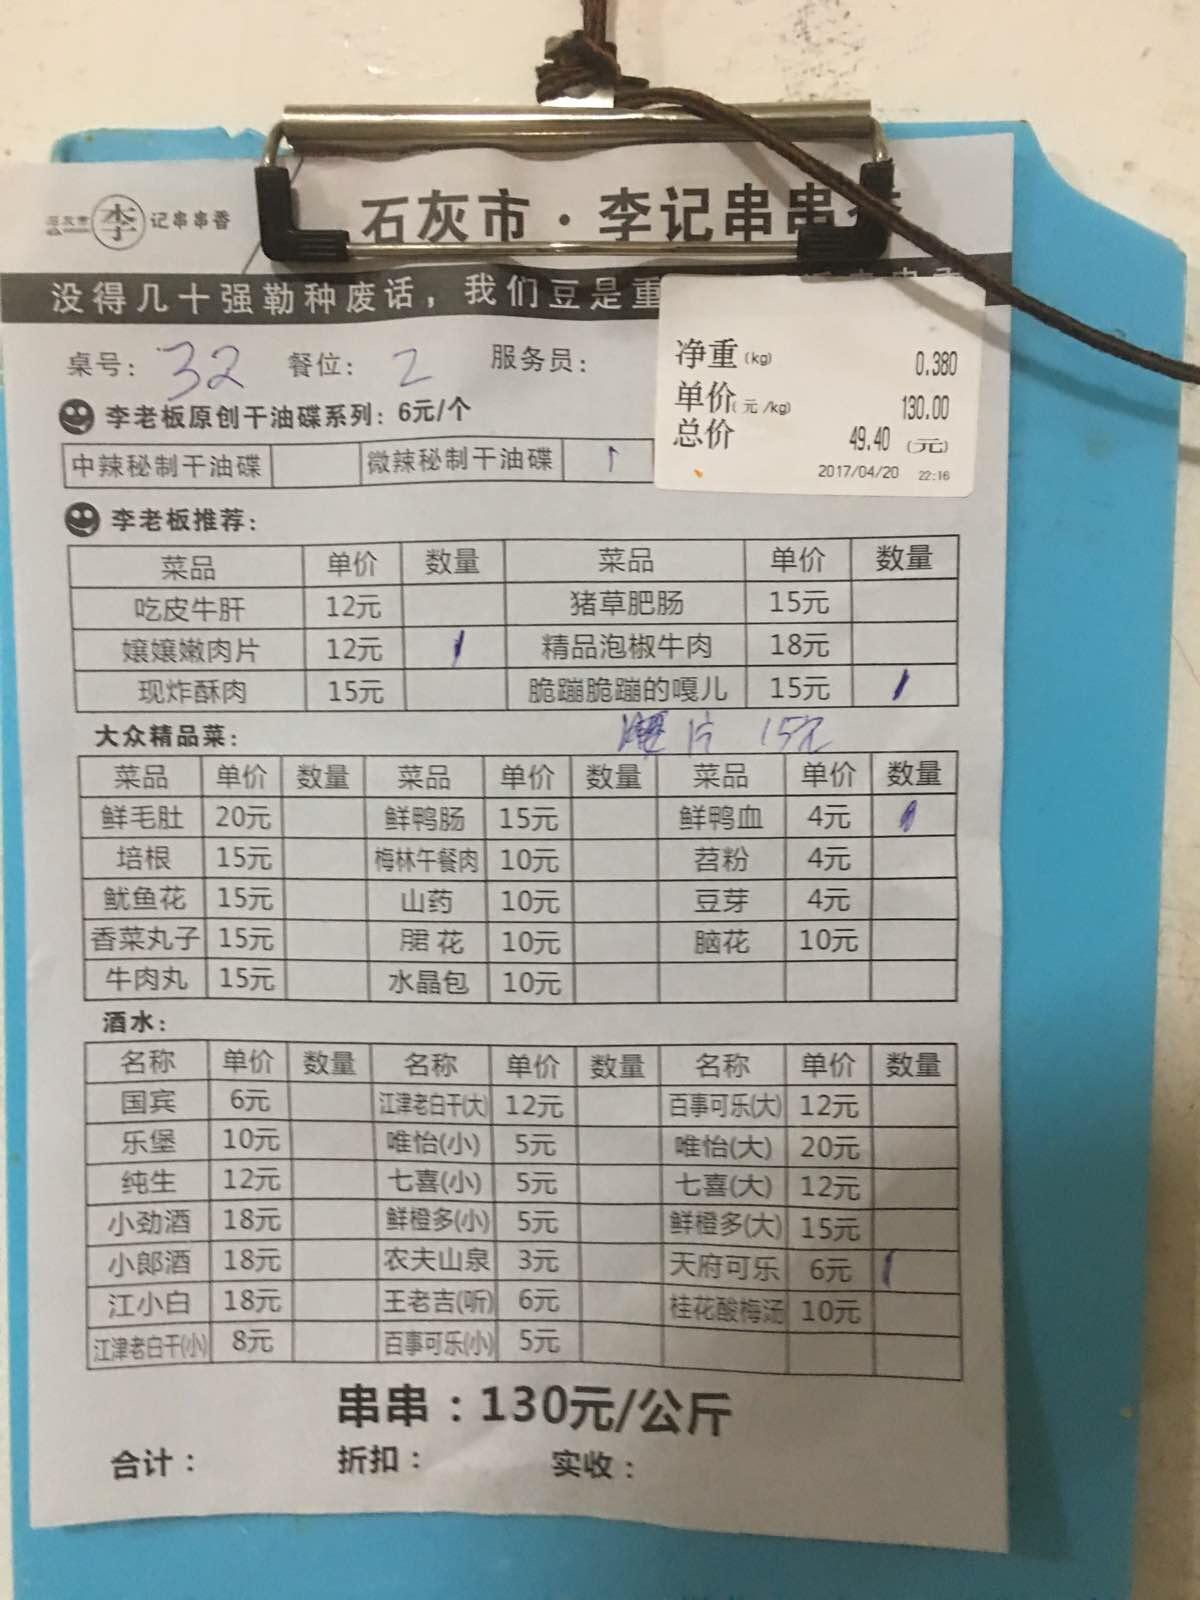 石灰市 李 记串串香
石灰市·李记串串香
没得几十强勒种废话，我们豆是重
净重(kg) 0.380
单价(元/kg) 130.00
总价 49.40 (元)
2017/04/20 22:16
桌号：32 餐位：2 服务员：
李老板原创干油碟系列：6元/个
中辣秘制干油碟 微辣秘制干油碟 1
李老板推荐：
菜品 单价 数量 菜品 单价 数量
吃皮牛肝 12元 猪草肥肠 15元
嬢嬢嫩肉片 12元 1 精品泡椒牛肉 18元
现炸酥肉 15元 脆蹦脆蹦的嘎儿 15元 1
片 15元
大众精品菜：
菜品 单价 数量 菜品 单价 数量 菜品 单价 数量
鲜毛肚 20元 鲜鸭肠 15元 鲜鸭血 4元 1
培根 15元 梅林午餐肉 10元 苕粉 4元
鱿鱼花 15元 山药 10元 豆芽 4元
香菜丸子 15元 䐃花 10元 脑花 10元
牛肉丸 15元 水晶包 10元
酒水：
名称 单价 数量 名称 单价 数量 名称 单价 数量
国宾 6元 江津老白干(大) 12元 百事可乐(大) 12元
乐堡 10元 唯怡(小) 5元 唯怡(大) 20元
纯生 12元 七喜(小) 5元 七喜(大) 12元
小劲酒 18元 鲜橙多(小) 5元 鲜橙多(大) 15元
小郎酒 18元 农夫山泉 3元 天府可乐 6元 1
江小白 18元 王老吉(听) 6元 桂花酸梅汤 10元
江津老白干(小) 8元 百事可乐(小) 5元
串串：130元/公斤
合计： 折扣： 实收：